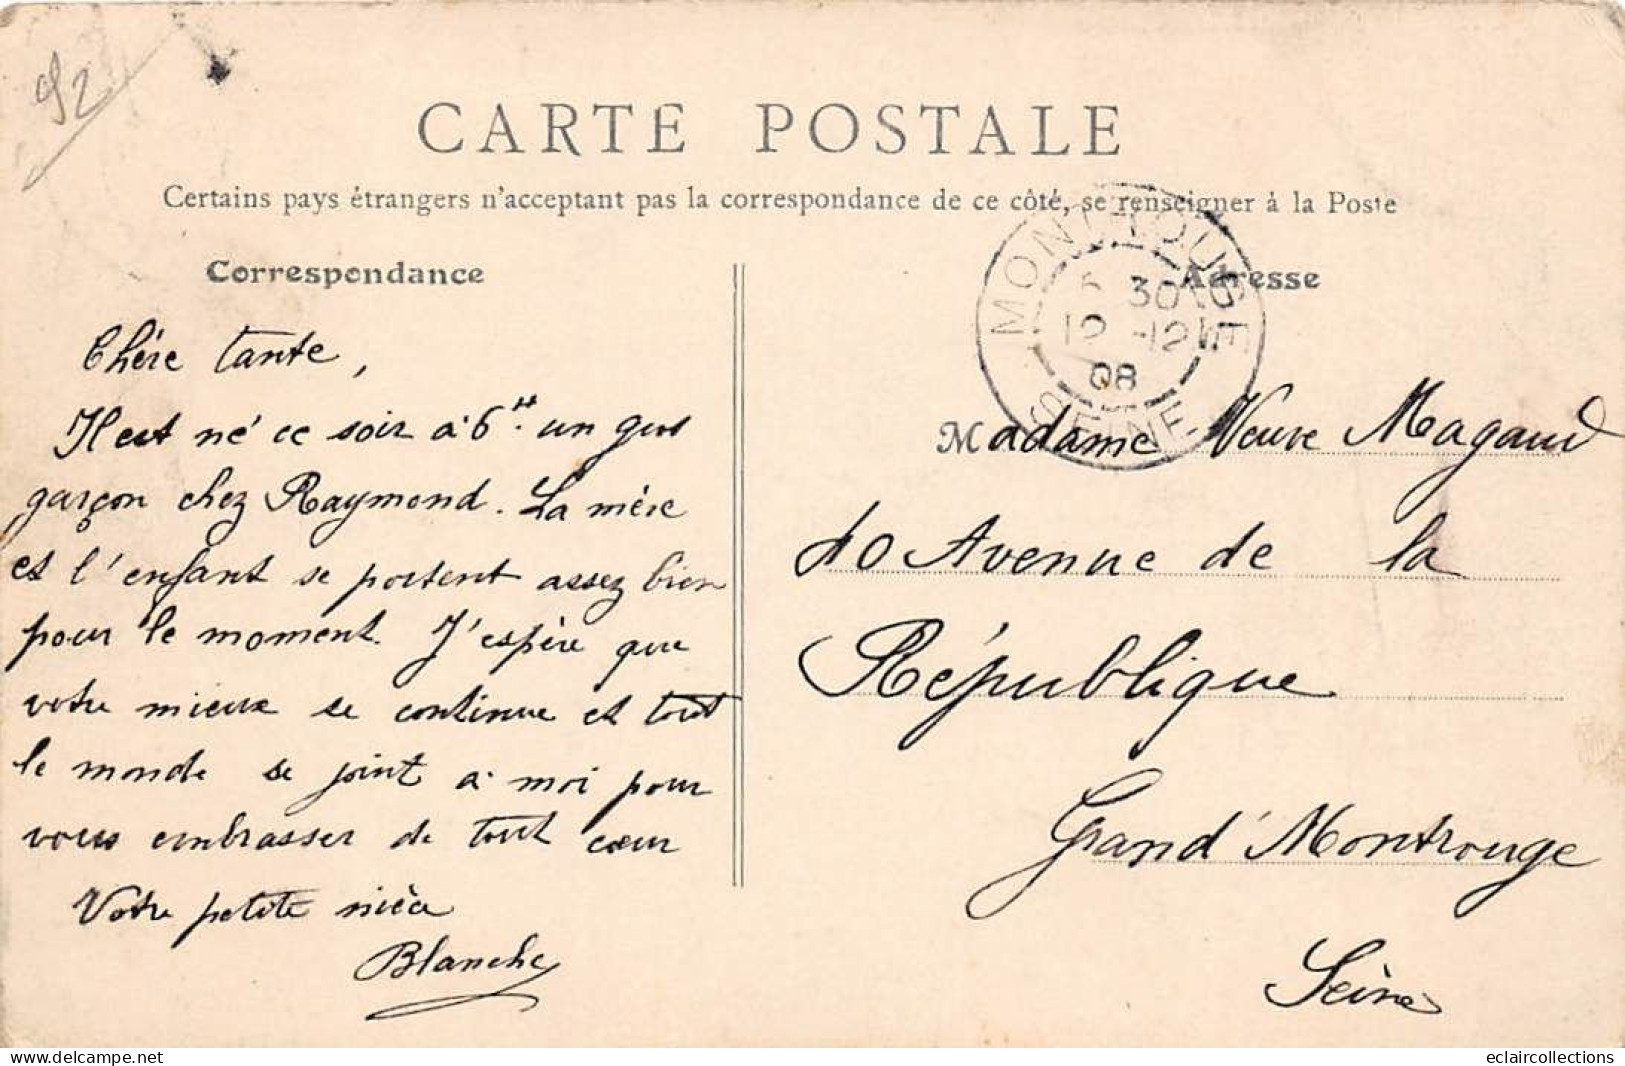 92
CARTE POSTALE
Certains pays étrangers n'acceptant pas la correspondance de ce côté, se renseigner à la Poste
Correspondance
Chère tante,
Il est né ce soir à 6H. un gros
garçon chez Raymond. La mère
et l'enfant se portent assez bien
pour le moment. J'espère que
votre mieux se continue et tout
le monde se joint à moi pour
vous embrasser de tout cœur
Votre petite nièce
Blanche
Adresse
MONTROUGE
30
12 -12
08
SEINE
Madame Veuve Magaud
40 Avenue de la
République
Grand Montrouge
Seine
www.delcampe.net
eclaircollections